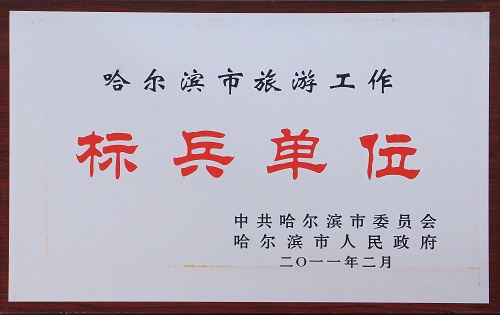 哈尔滨市旅游工作
标兵单位
中共哈尔滨市委员会
哈尔滨市人民政府
二〇一一年二月